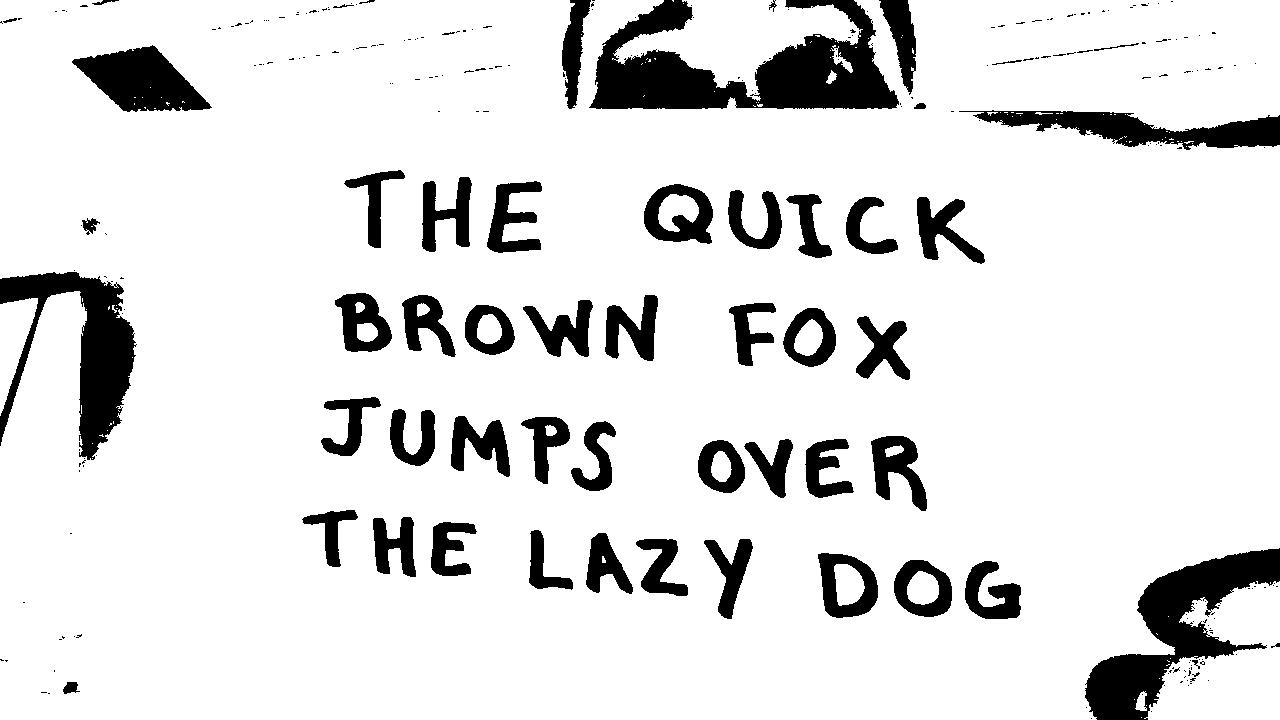 THE QUICK
BROWN FOX
JUMPS OVER
THE LAZY DOG